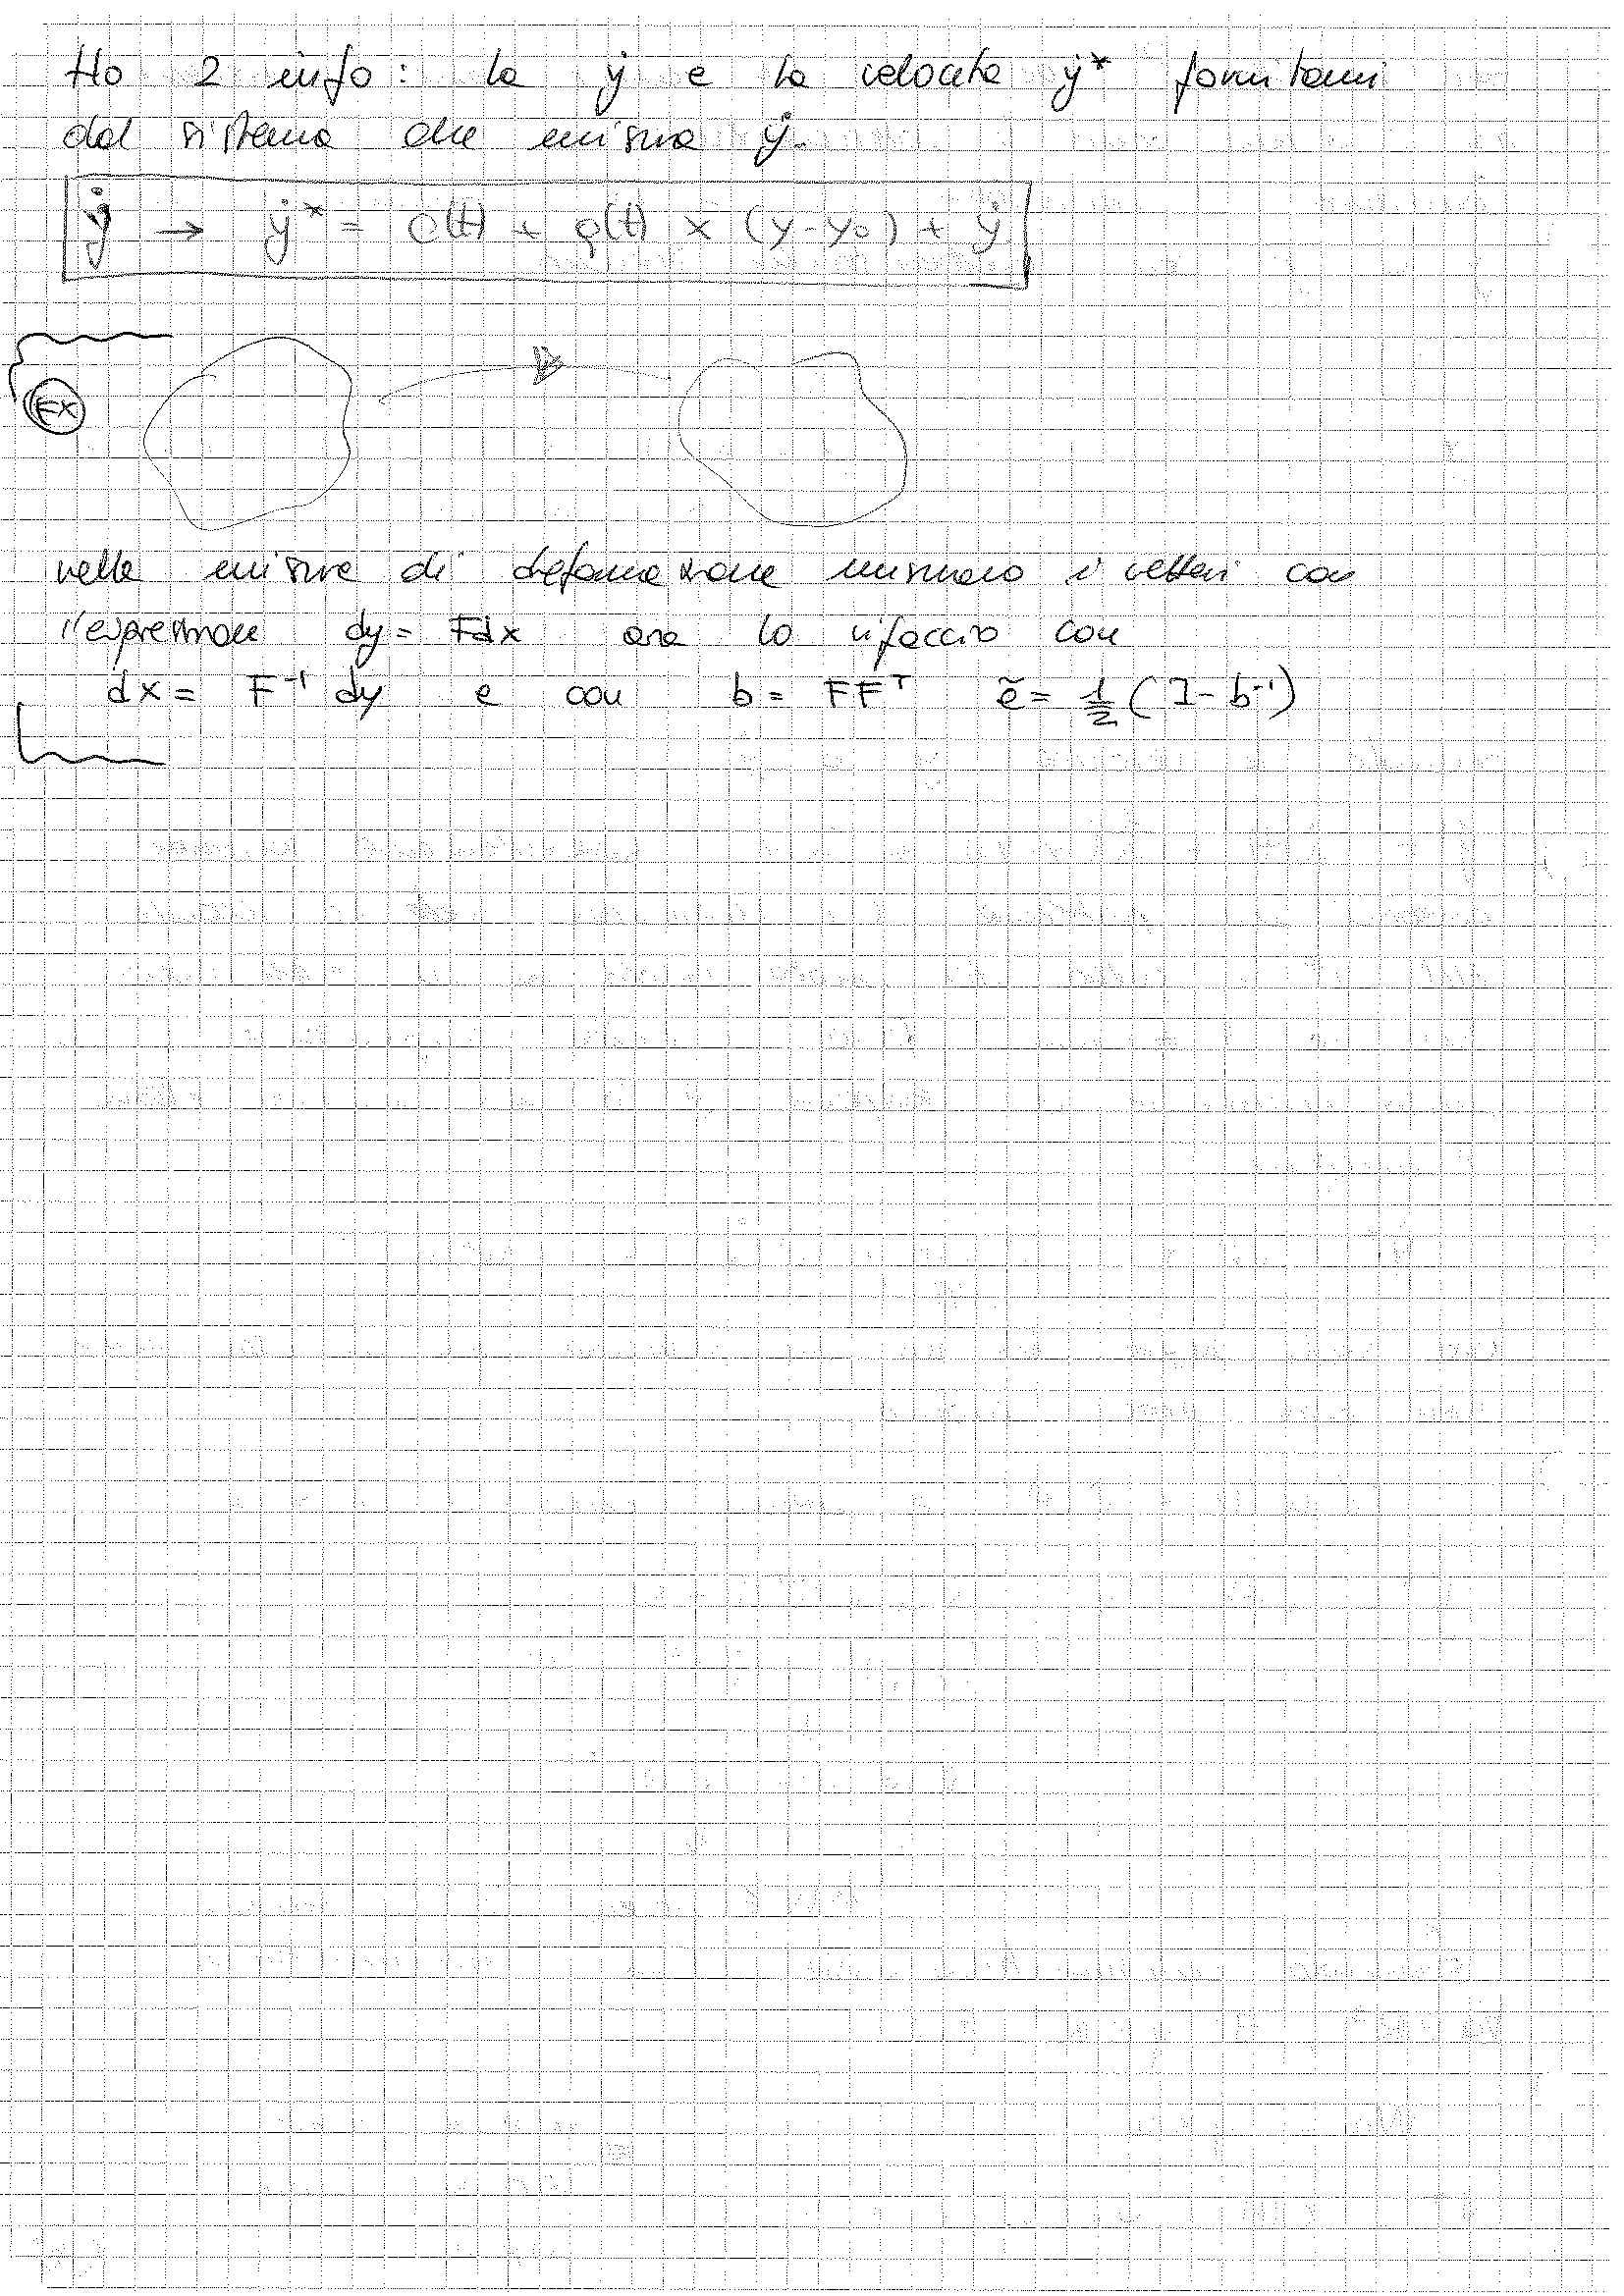 Ho 2 info: la ẏ e la velocità ẏ* fornitami
dal sistema che misura ẏ.
ẏ → ẏ* = c(t) + q(t) × (y-y₀) + ẏ
EX
nelle misure di deformazione misuravo i vettori con
l'espressione dy = Fdx ora lo rifaccio con
dx = F⁻¹ dy e con b = FFᵀ ẽ = 1/2 (I - b⁻¹)